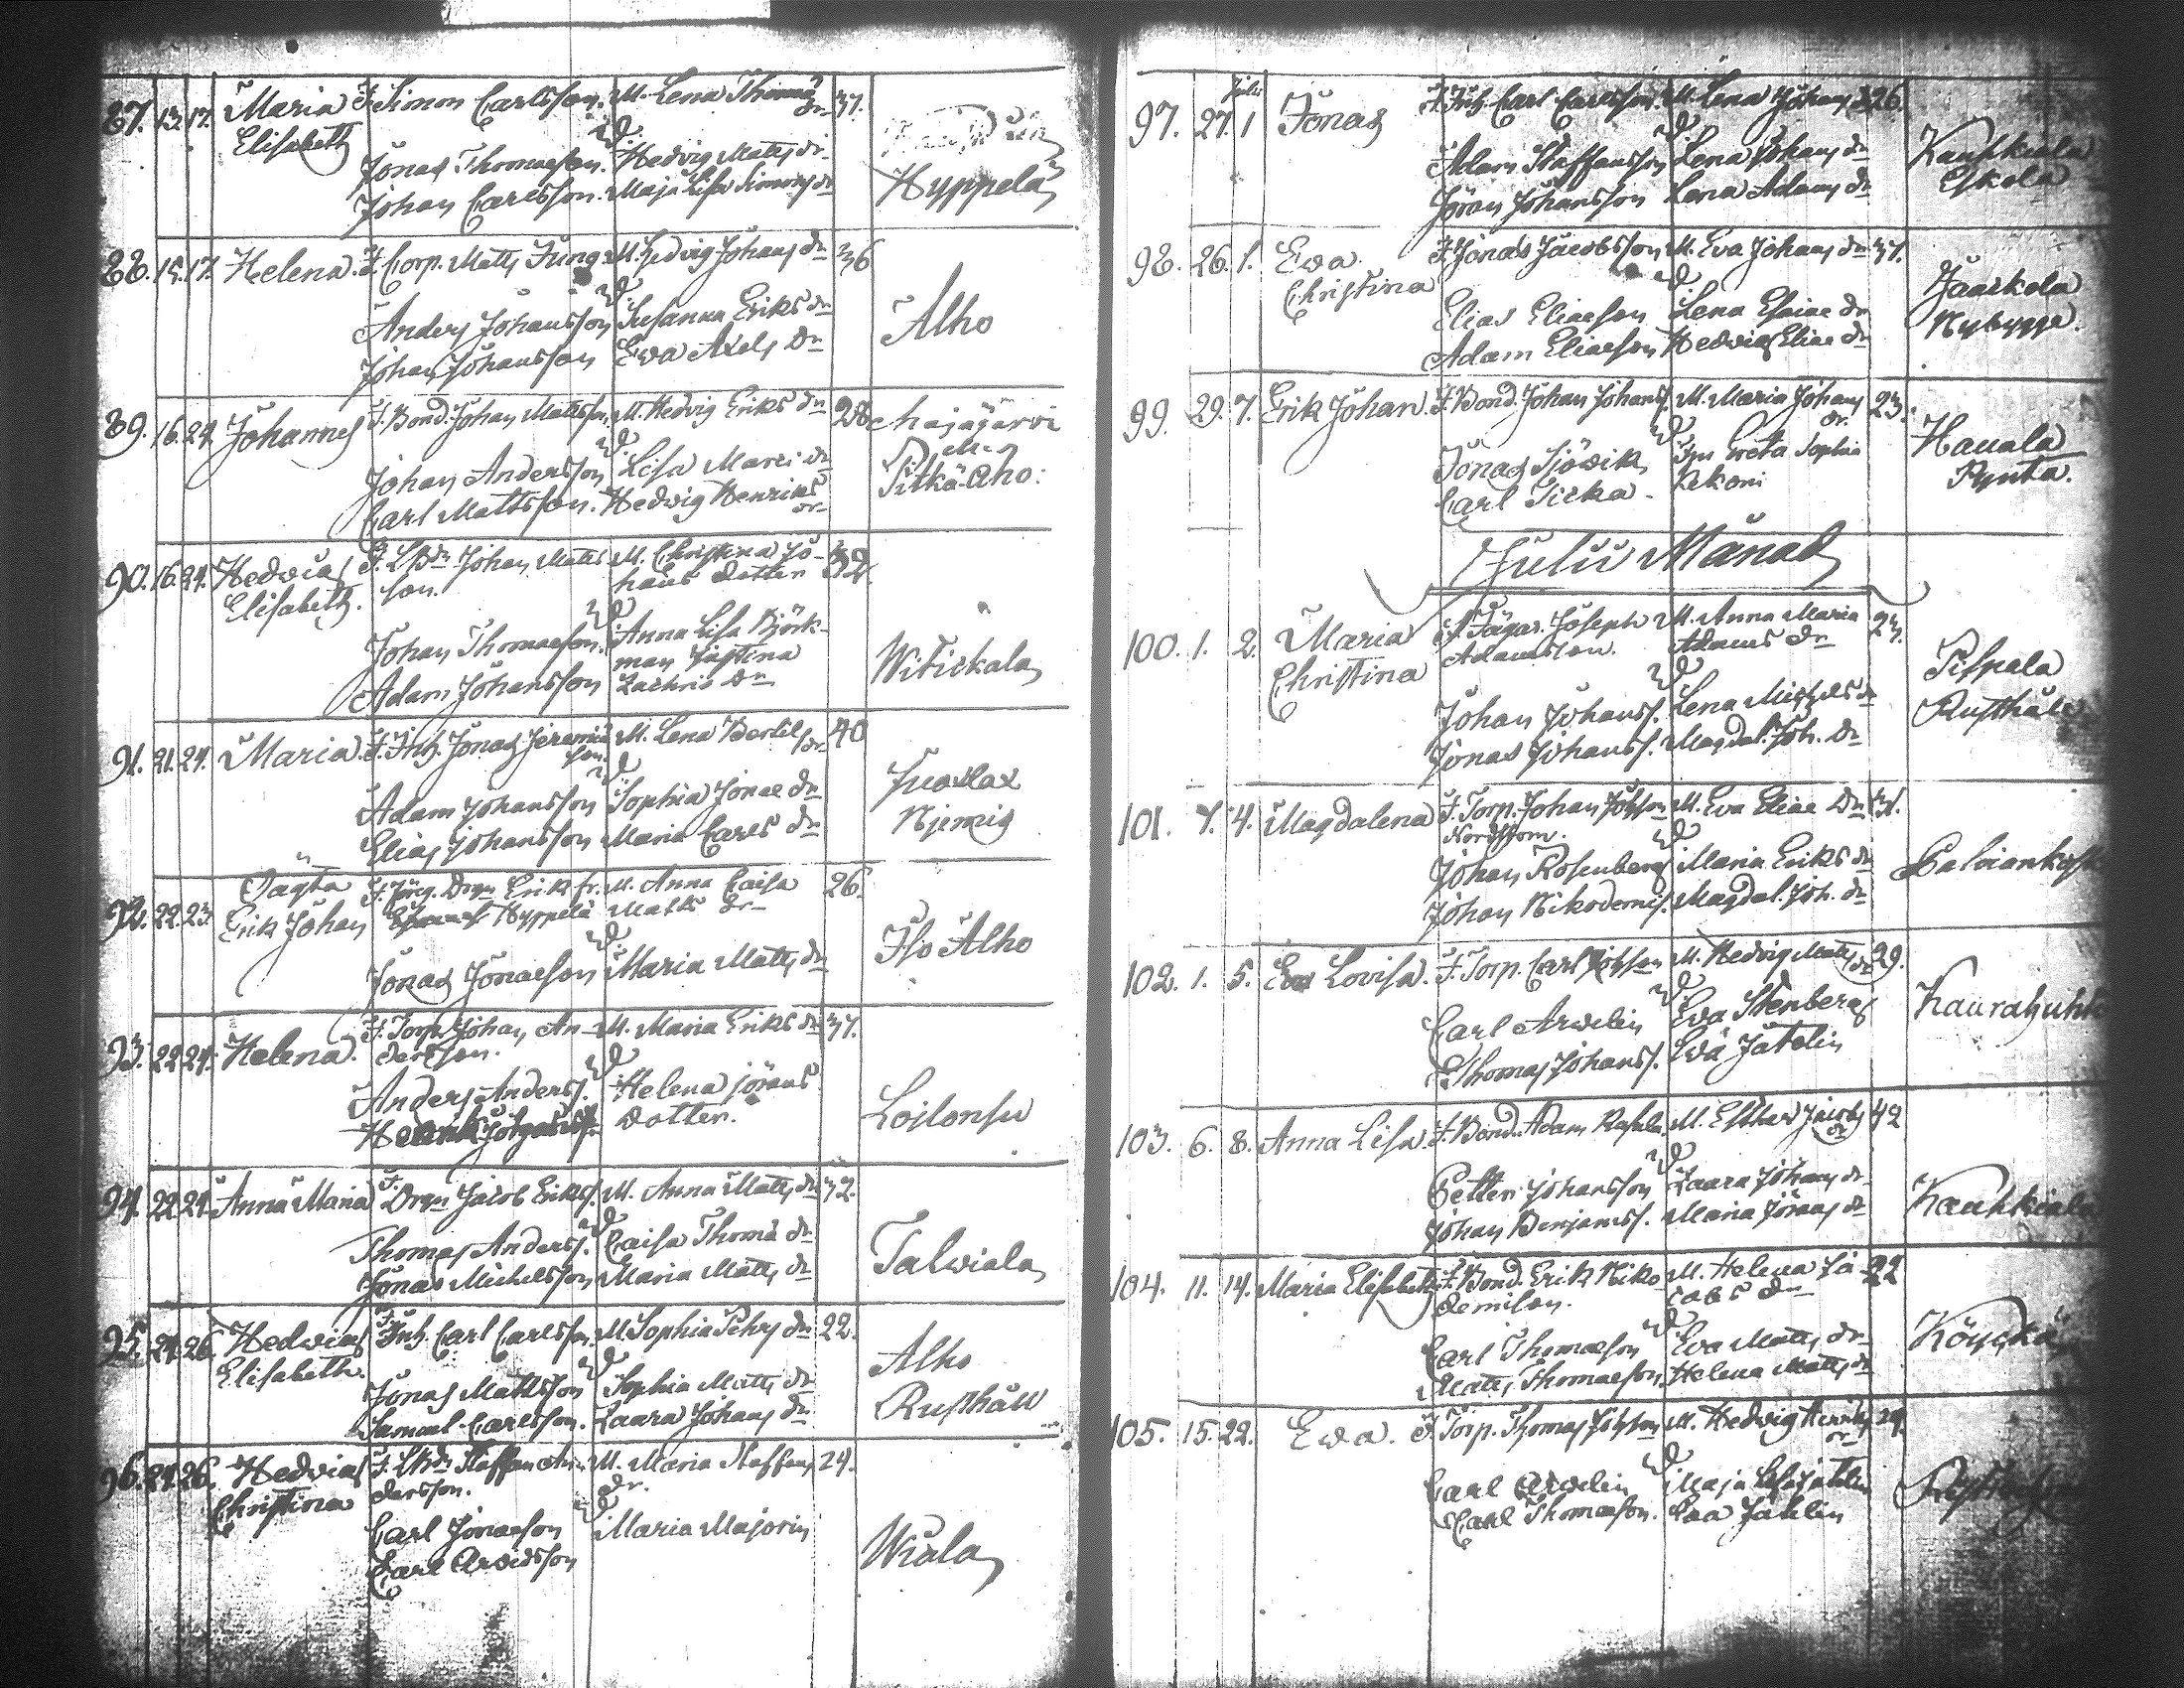 87. 13. 17. Maria F. Simon Carlsson. M. Lena Thomæ dr 37.
Elisabeth
Jonas Thomaeson. Hedvig Matts dr
Johan Carlsson. Maja Lisa Simons dr Hyppelä
88. 15. 17. Helena. F. Corp. Matts Jung M. Hedvig Johans dr 36
Anders Johansson Susanna Eriks dr Alho
Johan Johansson Eva Axels dr
89. 16. 24. Johannes F. Bond. Johan Mattsson M. Hedvig Eriks dr 28
Johan Andersson Lisa dr
Carl Mattsson. Hedvig Henriks dr Pitkä-Aho.
90. 16. 24. Hedvig F. Johan Matts M. Christina Jo- 32.
Elisabeth. son. hans dotter
Johan Thomaeson. Anna Lisa Björk-
man Justina Witickala
Adam Johansson Zachris dr
91. 21. 24. Maria. F. Inh. Jonas Jeremiæ M. Lena Bertils dr 40
son.
Adam Johansson Sophia Jonae dr
Elias Johansson Maria Carls dr
Oägta
92. 22. 23. Erik Johan F. Drgn Erik fr. M. Anna Caisa 26.
Hyppelä Matts dr
Jonas Jonaeson Maria Matts dr Iso Alho
93. 22. 24. Helena. F. Torp. Johan An- M. Maria Eriks dr 37.
dersson.
Anders Anderss. Helena Jörans
dotter. Loilonsu
94. 22. 24. Anna Maria F. Drgn Jacob Erikss. M. Anna Matts dr 32.
Thomas Anderss. Caisa Thomæ dr
Jonas Michelsson Maria Matts dr Talwiala
95. 24. 26. Hedvig F. Inh. Carl Carlsson. M. Sophia Pehrs dr 22.
Elisabeth.
Jonas Mattsson Sophia Matts dr Alho
Samuel Carlsson. Laara Johans dr Rusthåll
96. 24. 26. Hedvig F. Staffan An- M. Maria Staffans 24.
Christina dersson. dr.
Carl Jonaeson Maria Majorin
Carl Arvidsson Wiala
Julii
97. 27. 1 Jonas F. Inh. Carl Carlsson. M. Lena Johans dr 26.
Adam Staffansson Lena Johans dr Kauhkiala
Jöran Johansson Lena Adams dr Eskola
98. 26. 1. Eva F. Jonas Jacobsson M. Eva Johans dr 37.
Christina
Elias Eliaeson Lena Esaiae dr
Adam Eliaeson Hedvig Eliae dr Nybygge.
99. 29. 7. Erik Johan. F. Bond. Johan Johanss. M. Maria Johans 23.
dr.
Jonas Sjövik Greta Sophia Hauala
Carl Sirka. Rekoni Pynta.
Julii Månad
100. 1. 2. Maria F. Jägar. Joseph M. Anna Maria 23.
Christina Adamsson. Adams dr
Johan Johanss. Lena Michels dr Pispala
Jonas Johanss. Magdal. Joh. dr Rusthåll
101. 1. 4. Magdalena F. Torp. Johan Johsson M. Eva Eliae dr
Nordstrom.
Johan Rosenberg Maria Eriks dr
Johan Nikodemis. Magdal. Joh. dr
102. 1. 5. Eva Lovisa. F. Torp. Carl Johsson M. Hedvig Matts dr 29.
Carl Arvelin Eva Stenberg
Thomas Johanss. Eva Jatelin
103. 6. 8. Anna Lisa. F. Bond. Adam M. Esther Jacobs dr 42
Petter Johansson Laara Johans dr
Johan Benjamiss. Maria Jörans dr Kauhkiala
104. 11. 14. Maria Elisabeth F. Bond. Erik Niko- M. Helena Ja- 22
demison. cobs dr
Carl Thomaeson Eva Matts dr
Matts Thomaeson. Helena Matts dr
105. 15. 22. Eva. F. Torp. Thomas Johsson M. Hedvig Henriks dr
Carl Arvelin Maja Lisa Jatelin
Carl Thomaeson. Eva Jatelin